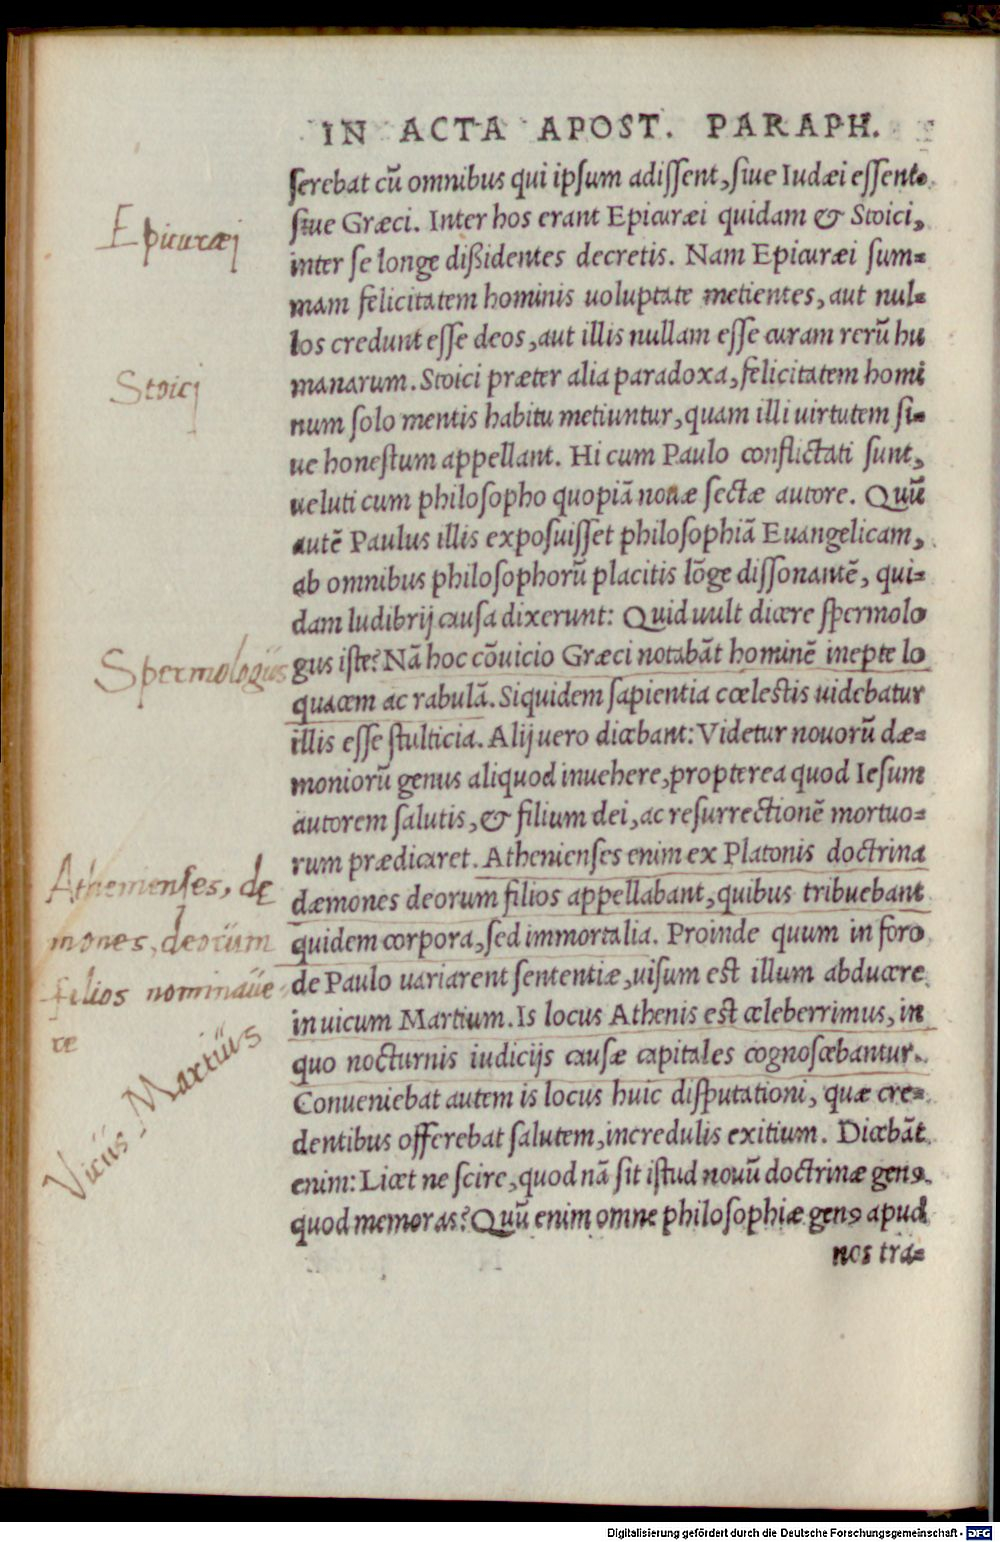 IN ACTA APOST. PARAPH.
serebat cū omnibus qui ipsum adissent, siue Iudæi essent
siue Græci. Inter hos erant Epicuræi quidam & Stoici,
inter se longe dißidentes decretis. Nam Epicuræi sum=
mam felicitatem hominis uoluptate metientes, aut nul=
los credunt esse deos, aut illis nullam esse curam rerū hu
manarum. Stoici præter alia paradoxa, felicitatem homi
num solo mentis habitu metiuntur, quam illi uirtutem si=
ue honestum appellant. Hi cum Paulo conflictati sunt,
ueluti cum philosopho quopiā nouæ sectæ autore. Quū
autē Paulus illis exposuisset philosophiā Euangelicam,
ab omnibus philosophorū placitis lōge dissonantē, qui=
dam ludibrij causa dixerunt: Quid uult dicere spermolo
gus iste? Nā hoc cōuicio Græci notabāt hominē inepte lo
quacem ac rabulā. Siquidem sapientia cœlestis uidebatur
illis esse stulticia. Alij uero dicebant: Videtur nouorū dæ=
moniorū genus aliquod inuehere, propterea quod Iesum
autorem salutis, & filium dei, ac resurrectionē mortuo=
rum prædicaret. Athenienses enim ex Platonis doctrina
dæmones deorum filios appellabant, quibus tribuebant
quidem corpora, sed immortalia. Proinde quum in foro
de Paulo uariarent sententiæ, uisum est illum abducere
in uicum Martium. Is locus Athenis est celeberrimus, in
quo nocturnis iudicijs causæ capitales cognoscebantur.
Conueniebat autem is locus huic disputationi, quæ cre=
dentibus offerebat salutem, incredulis exitium. Dicebāt
enim: Licet ne scire, quod nā sit istud nouū doctrinæ genꝰ
quod memoras? Quū enim omne philosophiæ genꝰ apud
nos tra=
Epicuræj
Stoicj
Spermologus
Athenienses, dę
mones, deorum
filios nominaue
re
Vicus Martius
Digitalisierung gefördert durch die Deutsche Forschungsgemeinschaft - DFG